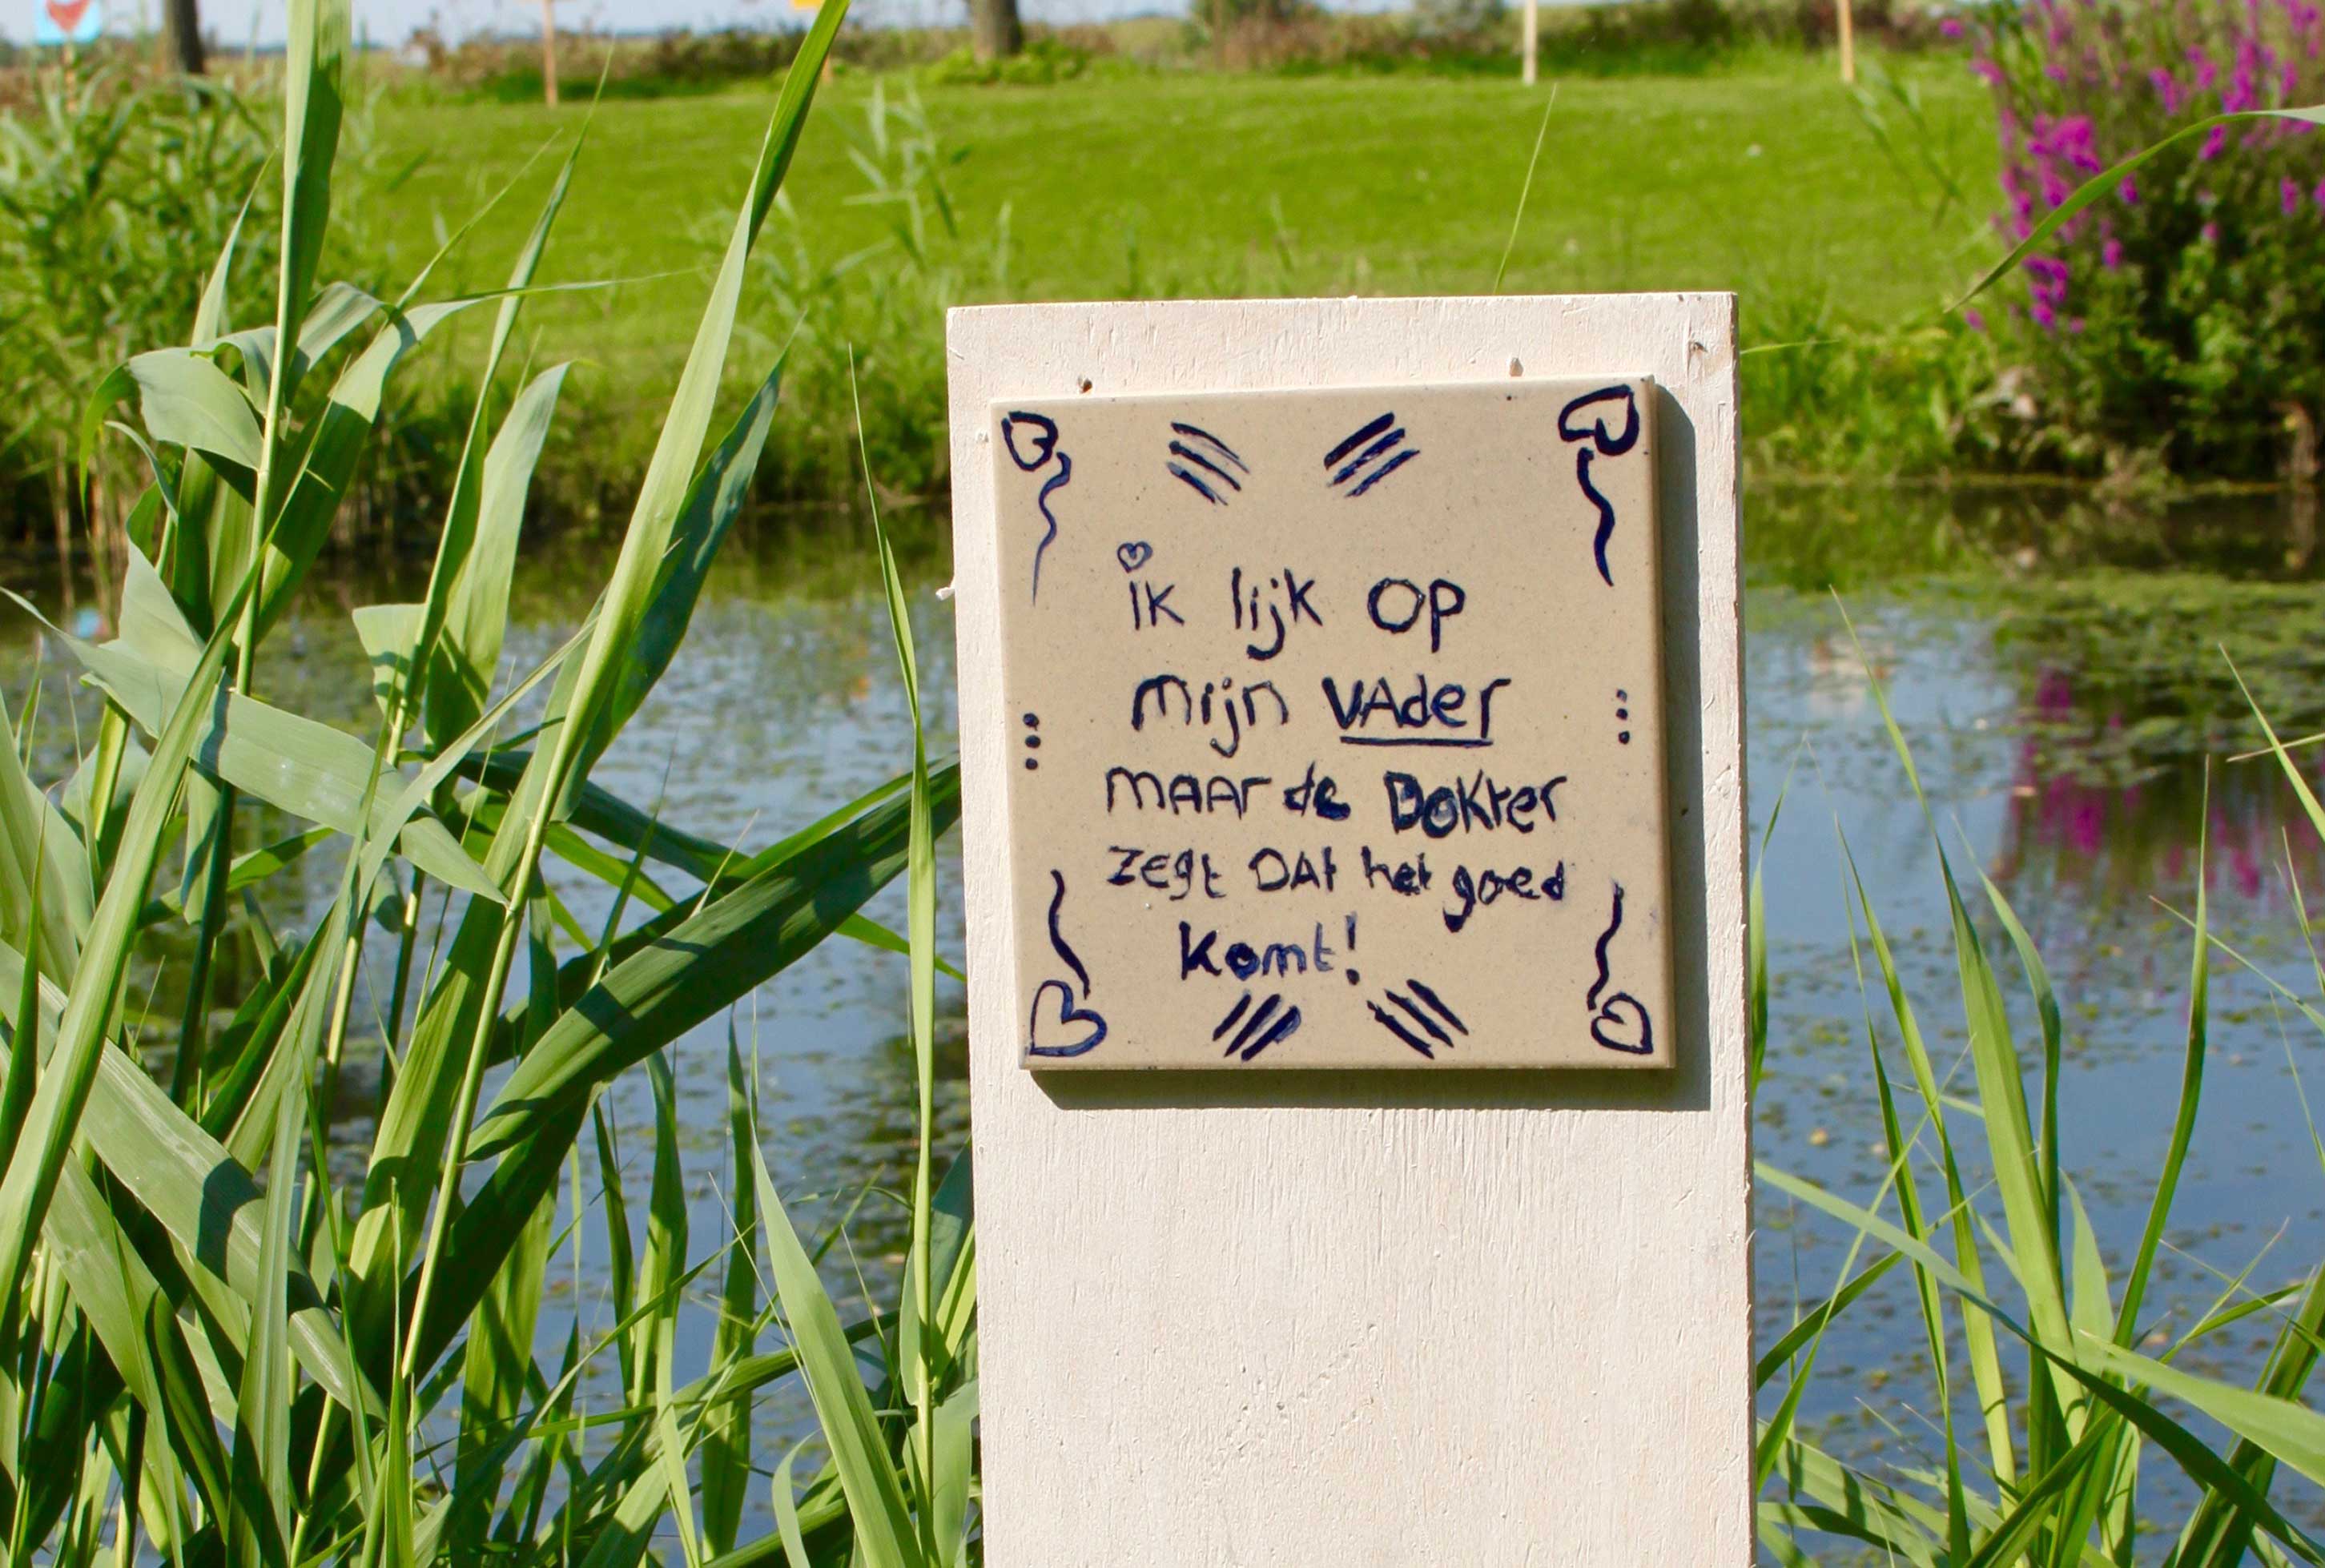 ik lijk op
mijn VAder
mAAr de Dokter
zegt DAt het goed
komt!